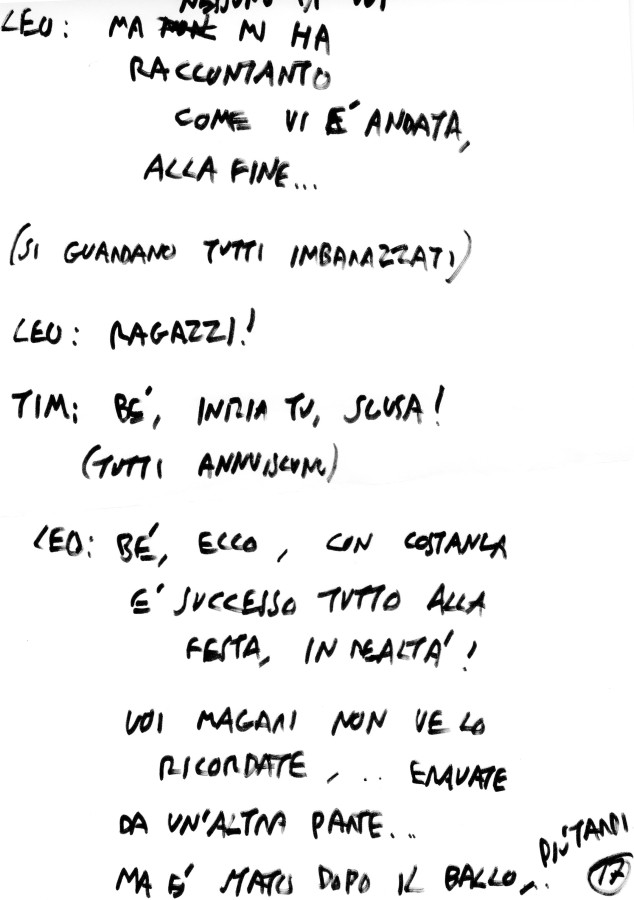 NESSUNO DI VOI
LEO: MA NON MI HA
RACCONTANTO
COME VI È ANDATA,
ALLA FINE...
(SI GUARDANO TUTTI IMBARAZZATI)
LEO: RAGAZZI!
TIM: BÉ, INIZIA TU, SCUSA!
(TUTTI ANNUISCONO)
LEO: BÉ, ECCO, CON COSTANZA
E' SUCCESSO TUTTO ALLA
FESTA, IN REALTA'!
VOI MAGARI NON VE LO
RICORDATE, .. ERAVATE
DA UN'ALTRA PARTE...
MA E' STATO DOPO IL BALLO, ..
PIÙ TARDI
17